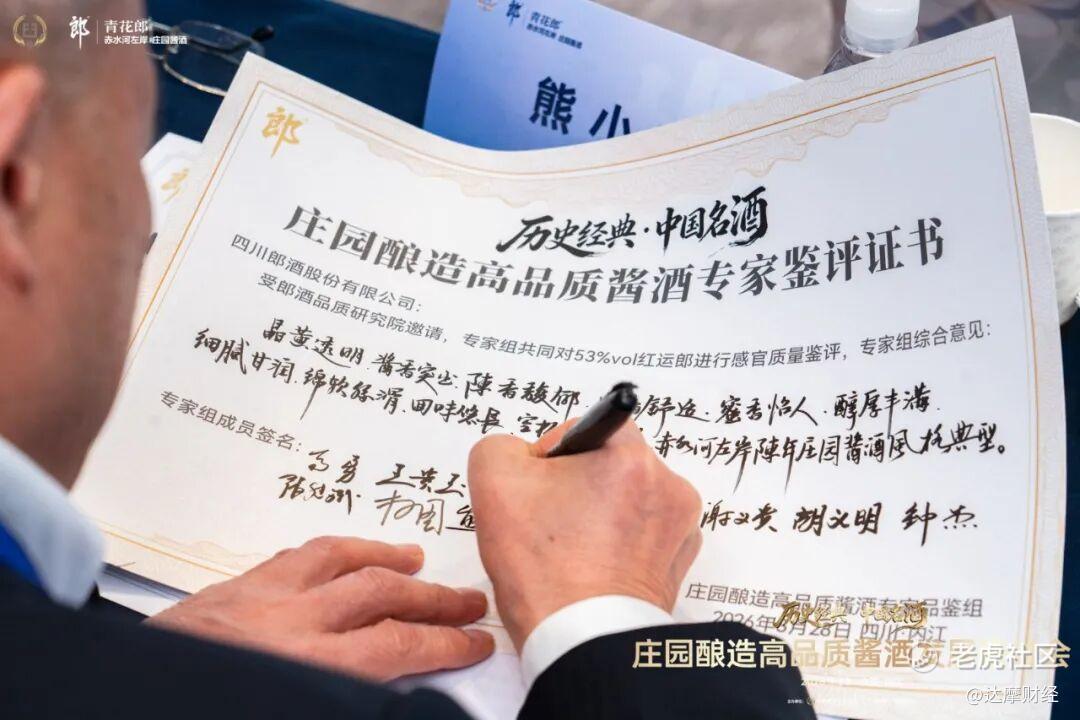 郎 青花郎
赤水河左岸 庄园酱酒
郎 青花郎
赤水河左岸 庄园酱酒
熊小
郎
历史经典·中国名酒
庄园酿造高品质酱酒专家鉴评证书
四川郎酒股份有限公司：
受郎酒品质研究院邀请，专家组共同对53%vol红运郎进行感官质量鉴评，专家组综合意见：
晶黄透明、酱香突出、陈香馥郁、舒适、蜜香怡人、醇厚丰满、
细腻甘润、绵软丝滑、回味悠长、空杯 赤水河左岸陈年庄园酱酒风格典型。
专家组成员签名：
高勇 王贵玉
谢义贵 胡义明 钟杰
庄园酿造高品质酱酒专家品鉴组
2026年 月28日 四川·内江
历史经典 中国名酒
庄园酿造高品质酱酒发展 会
老虎社区
@达摩财经